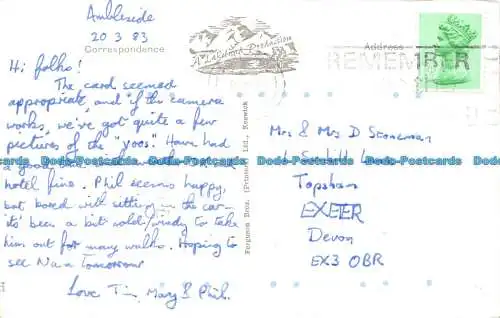 Ambleside
20 3 83
Correspondence
Hi folks!
The card seemed
appropriate, and if the camera
works, we've got quite a few
pictures of the "yoos". Have had
a good
hotel fine. Phil seems happy,
but bored with sitting in the car-
it's been a bit cold/windy to take
him out for many walks. Hoping to
see Nana Tomorrow
Love Tim, Mary & Phil.
A Lakeland Production
Ferguson Bros. (Printers) Ltd., Keswick
Address
REMEMBER
Mrs & Mrs D Stoneman
Topsham
EXETER
Devon
EX3 0BR
Dodo-Postcards Dodo-Postcards Dodo-Postcards Dodo-Postcards